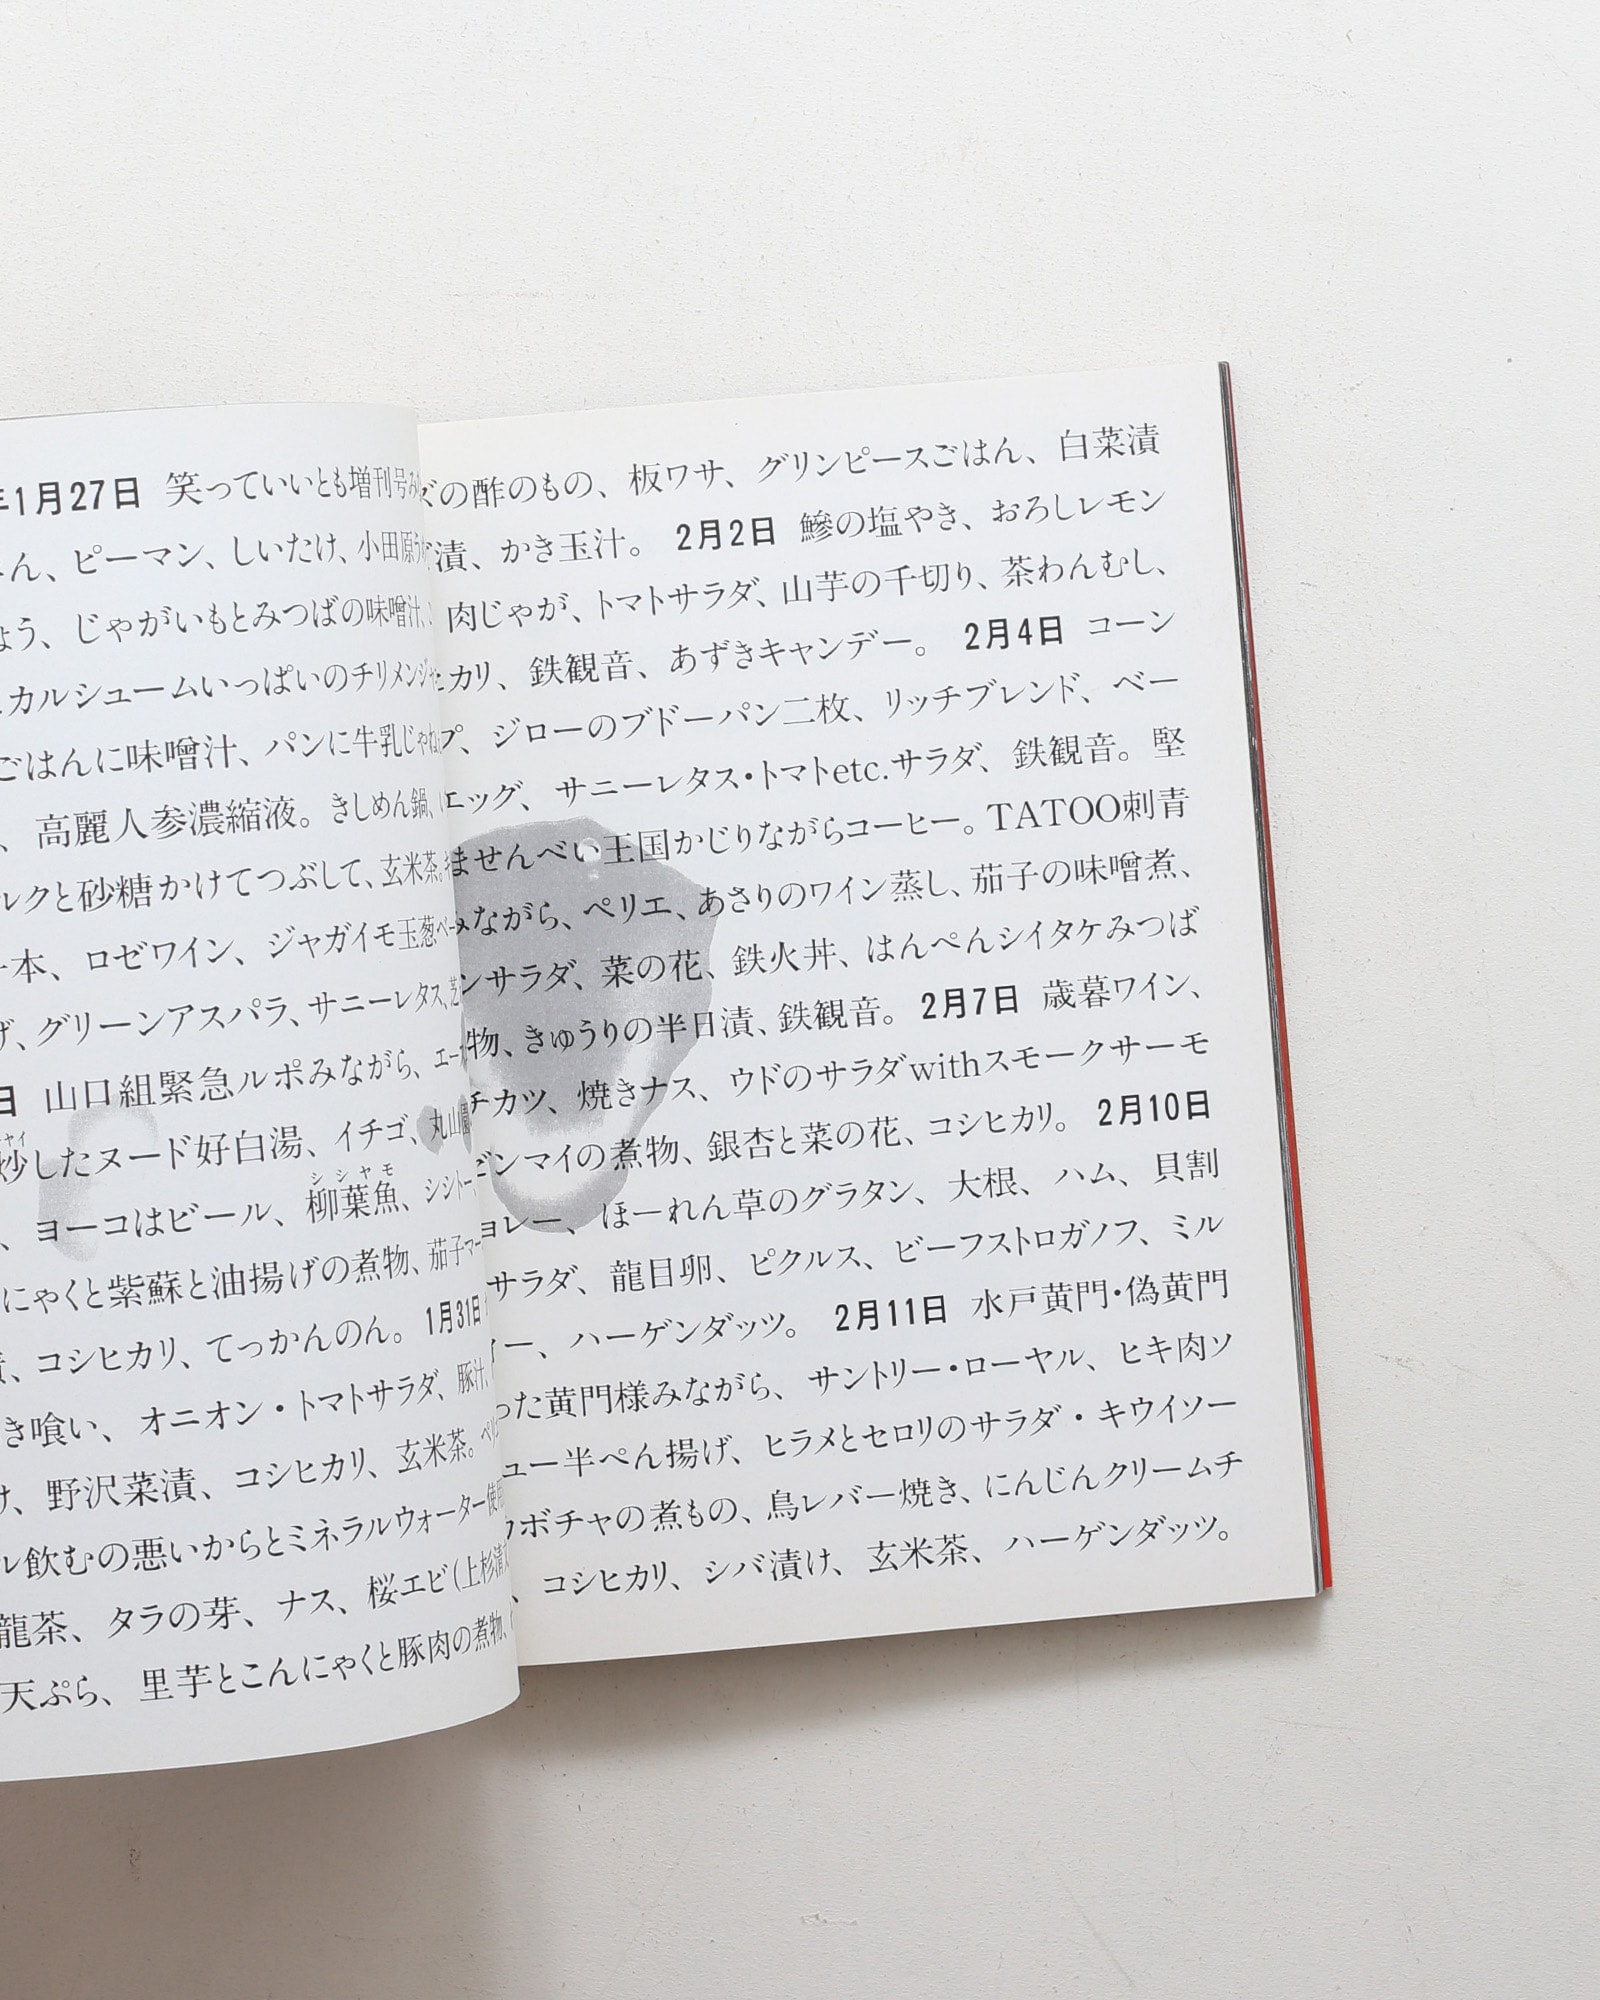 年1月27日 笑っていいとも増刊号み
ん、ピーマン、しいたけ、小田原う
ょう、じゃがいもとみつばの味噌汁、
カルシュームいっぱいのチリメンジャ
ごはんに味噌汁、パンに牛乳じゃね
、高麗人参濃縮液。きしめん鍋、
ルクと砂糖かけてつぶして、玄米茶。
一本、ロゼワイン、ジャガイモ玉葱ベー
げ、グリーンアスパラ、サニーレタス、芝
日 山口組緊急ルポみながら、エー
炒したヌード好白湯、イチゴ、丸山園
、ヨーコはビール、柳葉魚、シシトー
シシャモ
にゃくと紫蘇と油揚げの煮物、茄子マー
、コシヒカリ、てっかんのん。1月31日
き喰い、オニオン・トマトサラダ、豚汁、
け、野沢菜漬、コシヒカリ、玄米茶。ペリ
ル飲むの悪いからとミネラルウォーター使用
龍茶、タラの芽、ナス、桜エビ(上杉清
天ぷら、里芋とこんにゃくと豚肉の煮物、
ズの酢のもの、板ワサ、グリンピースごはん、白菜漬
漬、かき玉汁。 2月2日 鰺の塩やき、おろしレモン
肉じゃが、トマトサラダ、山芋の千切り、茶わんむし、
ヒカリ、鉄観音、あずきキャンデー。 2月4日 コーン
プ、ジローのブドーパン二枚、リッチブレンド、ベー
エッグ、サニーレタス・トマトetc.サラダ、鉄観音。堅
ませんべい王国かじりながらコーヒー。TATOO刺青
みながら、ペリエ、あさりのワイン蒸し、茄子の味噌煮、
ンサラダ、菜の花、鉄火丼、はんぺんシイタケみつば
物、きゅうりの半日漬、鉄観音。 2月7日 歳暮ワイン、
チカツ、焼きナス、ウドのサラダwithスモークサーモ
ゼンマイの煮物、銀杏と菜の花、コシヒカリ。 2月10日
ョレー、ほーれん草のグラタン、大根、ハム、貝割
サラダ、龍目卵、ピクルス、ビーフストロガノフ、ミル
ィー、ハーゲンダッツ。 2月11日 水戸黄門・偽黄門
った黄門様みながら、サントリー・ローヤル、ヒキ肉ソ
ュー半ぺん揚げ、ヒラメとセロリのサラダ・キウイソー
カボチャの煮もの、鳥レバー焼き、にんじんクリームチ
、コシヒカリ、シバ漬け、玄米茶、ハーゲンダッツ。